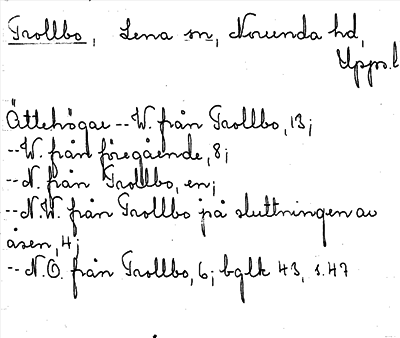 Trollbo, Lena sn, Norunda hd,
Upps.l
Ättehögar -- W. från Trollbo, 13;
-- W. från föregående, 8;
-- N. från Trollbo, en;
-- N.W. från Trollbo på sluttningen av
åsen, 4;
-- N.O. från Trollbo, 6; bglk 43, s.47